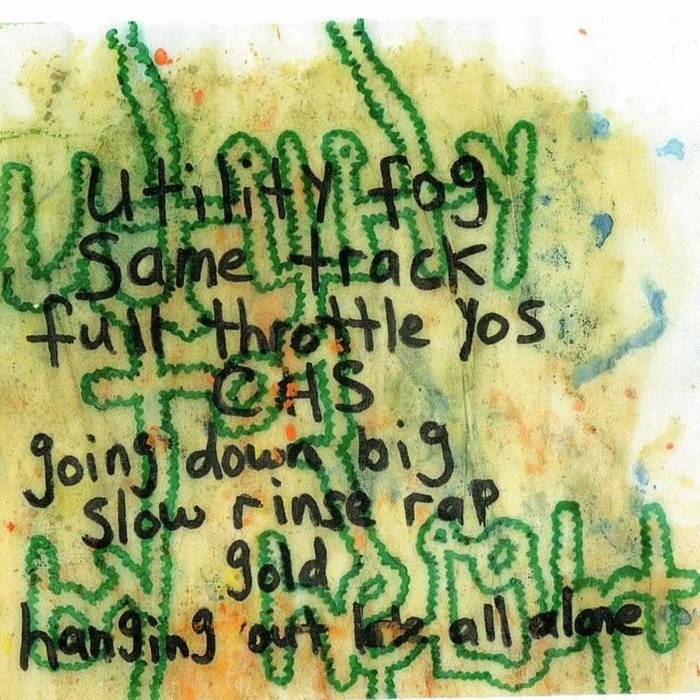 utility fog
Same track
full throttle yos
CHS
going down big
slow rinse rap
gold
hanging out all alone